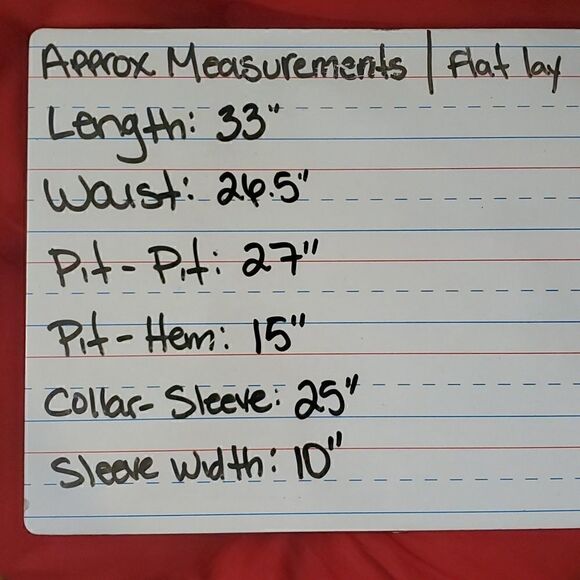 Approx Measurements | Flat lay
Length: 33"
Waist: 26.5"
Pit - Pit: 27"
Pit - Hem: 15"
Collar - Sleeve: 25"
Sleeve Width: 10"